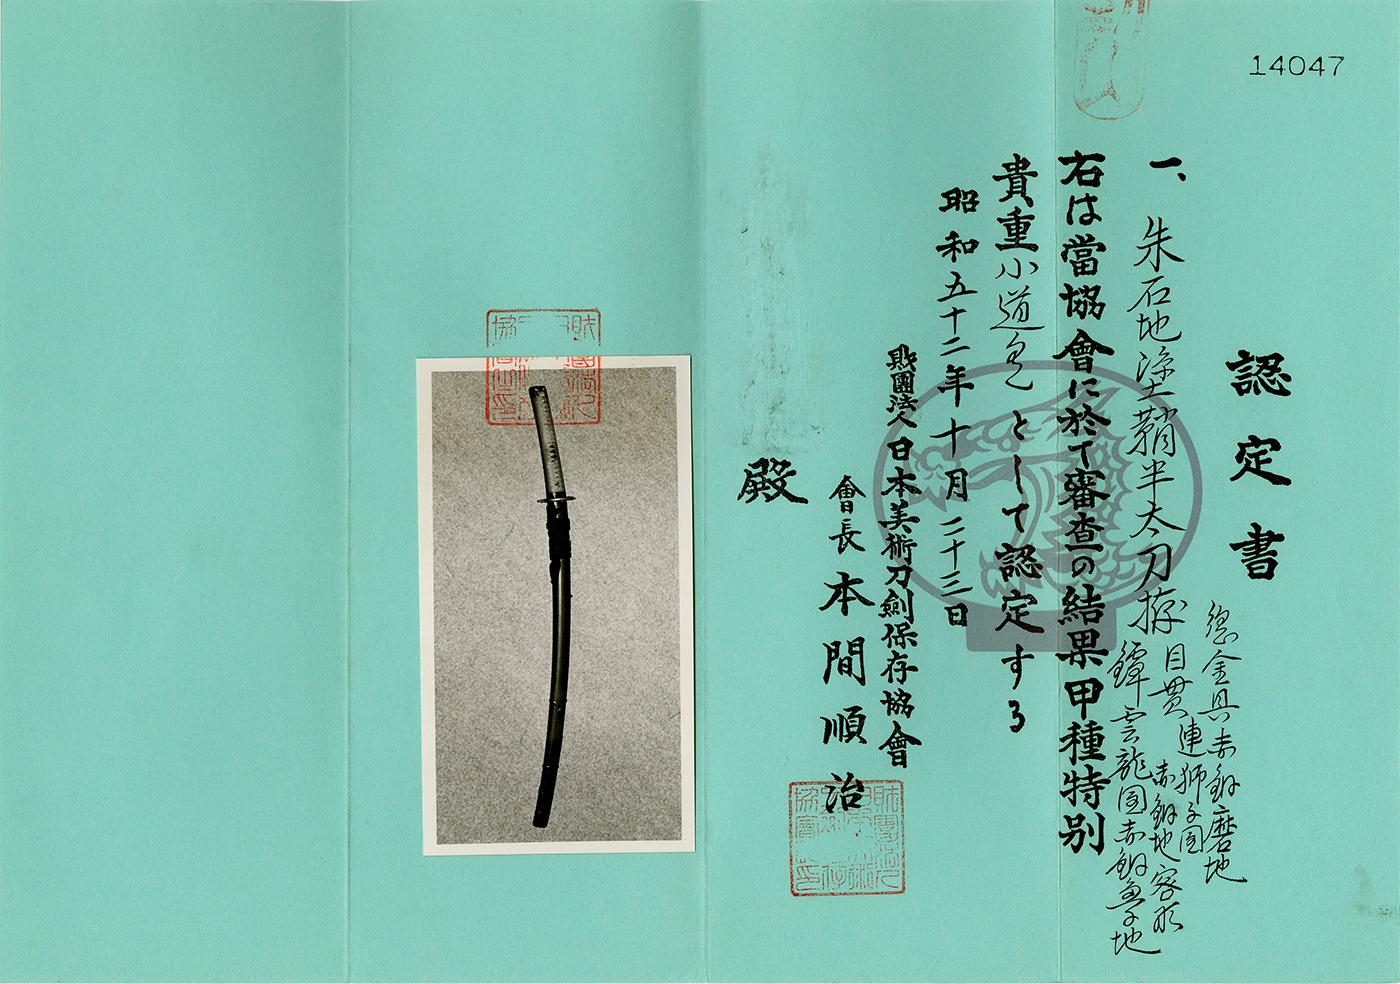 14047
認定書
一、朱石地塗鞘半太刀拵
総金具赤銅磨地
目貫連獅子図
赤銅地容彫
鐔雲龍図赤銅魚子地
右は當協會に於て審査の結果甲種特別
貴重小道具として認定する
昭和五十二年十月二十三日
財團法人日本美術刀劍保存協會
會長本間順治
殿